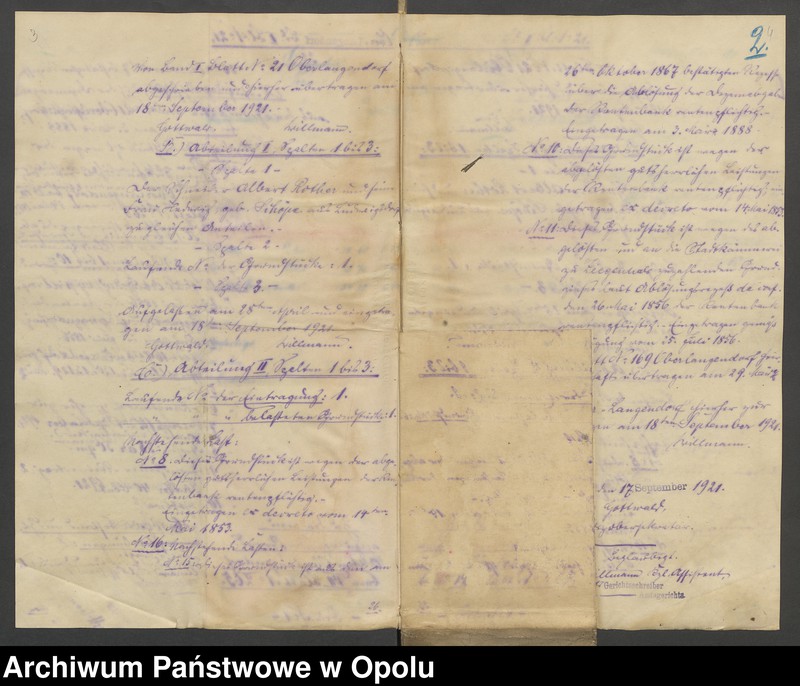 3
von Band I Blatt No 21 Oberlangendorf
abgeschrieben und hierher übertragen am
18ten September 1921.
Gottwald. Willmann.
B.) Abteilung I Spalten 1 bis 3:
- Spalte 1 -
Der Schneider Albert Rother und seine
Frau Hedwig geb. aus Ludwigsdorf
zu gleichen Anteilen. -
- Spalte 2 -
Laufende No der Grundstücke: 1.
- Spalte 3 -
Aufgelassen am 28ten April und eingetra-
gen am 18ten September 1921
Gottwald. Willmann.
C.) Abteilung II Spalten 1 bis 3:
Laufende No der Eintragung: 1.
" belasteten Grundstücke: 1.
Nachstehende Last:
No 8. Dieses Grundstück ist wegen der abge-
lösten gutsherrlichen Leistungen der Ren-
tenbank rentenpflichtig. -
Eingetragen ex decreto vom 14ten
Mai 1853.
No 16. Nachstehende Lasten:
No 15. Dieses Grundstück ist aus dem am
26.
2.
26ten Oktober 1867 bestätigten Rezess
über die Ablösung der
der Rentenbank rentenpflichtig. -
Eingetragen am 3. März 1888.
No 10. Dieses Grundstück ist wegen der
abgelösten gutsherrlichen Leistungen
der Rentenbank rentenpflichtig, ein-
getragen ex decreto vom 14. Mai 1853
No 11. Dieses Grundstück ist wegen des ab-
gelösten und an die Stadtkämmerei
zu Ziegenhals zu zahlenden Grund-
zinses laut Ablösungsrezess de conf.
den 26. Mai 1856 der Rentenbank
rentenpflichtig. - Eingetragen
vom 15. Juli 1856.
No 169 Oberlangendorf hier-
übertragen am 29. März
- Langendorf hierher zur
am 18ten September 1921.
Willmann.
den 17 September 1921.
Gottwald
obersekretär.
Beglaubigt.
Willmann Assistent
Gerichtsschreiber
Amtsgerichts.
Archiwum Państwowe w Opolu